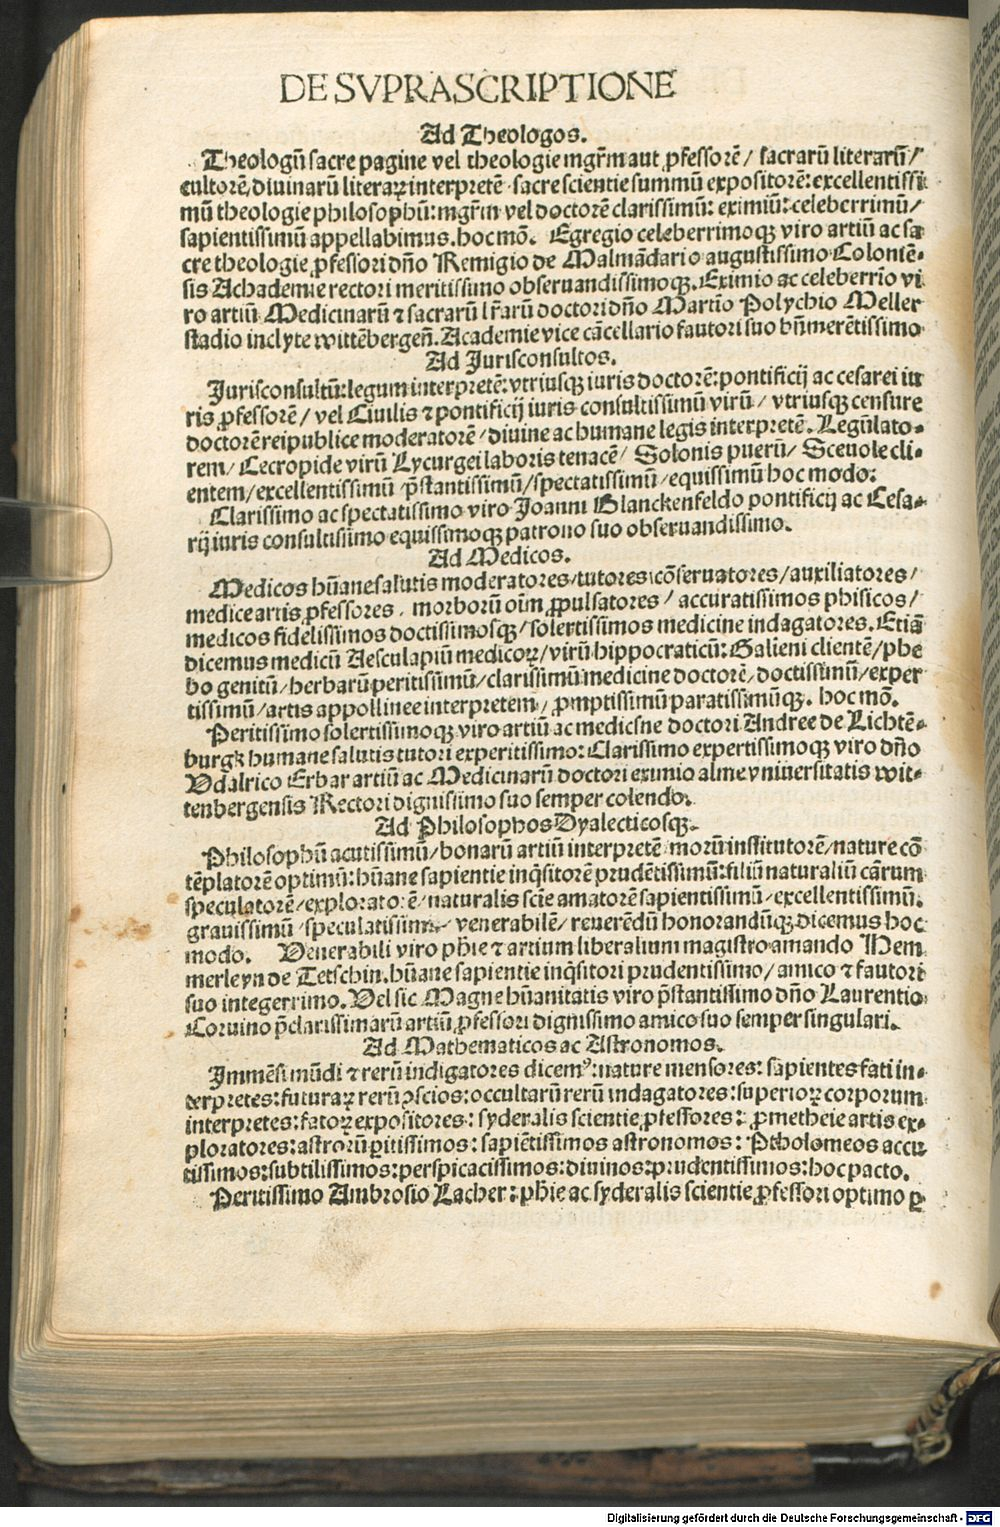 DE SVPRASCRIPTIONE
Ad Theologos.
Theologū sacre pagine vel theologie mgr̄m aut ꝓfessorē/ sacrarū literarū/
cultorē, diuinarū literaꝝ interpretē sacre scientie summū expositorē: excellentissi
mū theologie philosophū: mgr̄m vel doctorē clarissimū: eximiū: celeberrimū/
sapientissimū appellabimus. hoc mō. Egregio celeberrimoqꝫ viro artiū ac sa
cre theologie ꝓfessori dn̄o Remigio de Malmādario augustissimo Coloniē⸗
sis Achademie rectori meritissimo obseruandissimoqꝫ. Eximio ac celeberrīo vi
ro artiū Medicinarū ⁊ sacrarū lr̄arū doctori dn̄o Martīo Polychio Meller
stadio inclyte wittēbergen̄. Academie vice cācellario fautori suo bn̄merētissimo
Ad Jurisconsultos.
Jurisconsultū: legum interpretē: vtriusqꝫ iuris doctorē: pontificij ac cesarei iu
ris ꝓfessorē/ vel Ciuilis ⁊ pontificij iuris consultissimū virū/ vtriusqꝫ censure
doctorē reipublice moderatorē/ diuine ac humane legis interpretē. Legūlato⸗
rem/ Cecropide virū Lycurgei laboris tenacē/ Solonis puerū/ Sceuole cli⸗
entem/ excellentissimū p̄stantissimū/ spectatissimū/ equissimū hoc modo:
Clarissimo ac spectatissimo viro Joanni Blanckenfeldo pontificij ac Cesa⸗
rij iuris consultissimo equissimoqꝫ patrono suo obseruandissimo.
Ad Medicos.
Medicos hūane salutis moderatores/ tutores cōseruatores/ auxiliatores/
medice artis ꝓfessores, morborū oīm ꝓpulsatores/ accuratissimos phisicos/
medicos fidelissimos doctissimosqꝫ/ solertissimos medicine indagatores. Etiā
dicemus medicū Aesculapiū medicoꝝ/ virū hippocraticū: Galieni clientē/ phe
bo genitū/ herbarū peritissimū/ clarissimū medicine doctorē/ doctissimū/ exper
tissimū/ artis appollinee interpretem/ ꝓmptissimū paratissimūqꝫ. hoc mō.
Peritissimo solertissimoqꝫ viro artiū ac medicine doctori Andree de Lichtē⸗
burgk humane salutis tutori experitissimo: Clarissimo expertissimoqꝫ viro dn̄o
Vdalrico Erbar artiū ac Medicinarū doctori eximio alme vniuersitatis wit⸗
tenbergensis Rectori dignissimo suo semper colendo.
Ad Philosophos Dyalecticosqꝫ.
Philosophū acutissimū/ bonarū artiū interpretē morū institutorē/ nature cō
tēplatorē optimū: hūane sapientie inq̄sitorē prudētissimū: filiū naturaliū cārum
speculatorē/ exploratorē/ naturalis scīe amatorē sapientissimū/ excellentissimū.
grauissimū/ speculatissimū/ venerabilē/ reuerēdū honorandūqꝫ dicemus hoc
modo. Venerabili viro ph̄ie ⁊ artium liberalium magistro amando Hem
merleyn de Tetschin. hūane sapientie inq̄sitori prudentissimo/ amico ⁊ fautori
suo integerrimo. Vel sic Magne hūanitatis viro p̄stantissimo dn̄o Laurentio
Coruino p̄clarissimarū artiū ꝓfessori dignissimo amico suo semper singulari.
Ad Mathematicos ac Astronomos.
Immēsi mūdi ⁊ rerū indigatores dicemꝰ: nature mensores: sapientes fati in⸗
terpretes: futuraꝝ rerū ꝯscios: occultarū rerū indagatores: superioꝝ corporum
interpretes: fatoꝝ expositores: syderalis scientie ꝓfessores: ꝓmetheie artis ex⸗
ploratores: astrorū ꝑitissimos: sapiētissimos astronomos: Ptholomeos accu
tissimos: subtilissimos: perspicacissimos: diuinos: prudentissimos: hoc pacto.
Peritissimo Ambrosio Lacher: ph̄ie ac syderalis scientie ꝓfessori optimo ꝑ⸗
Digitalisierung gefördert durch die Deutsche Forschungsgemeinschaft - DFG